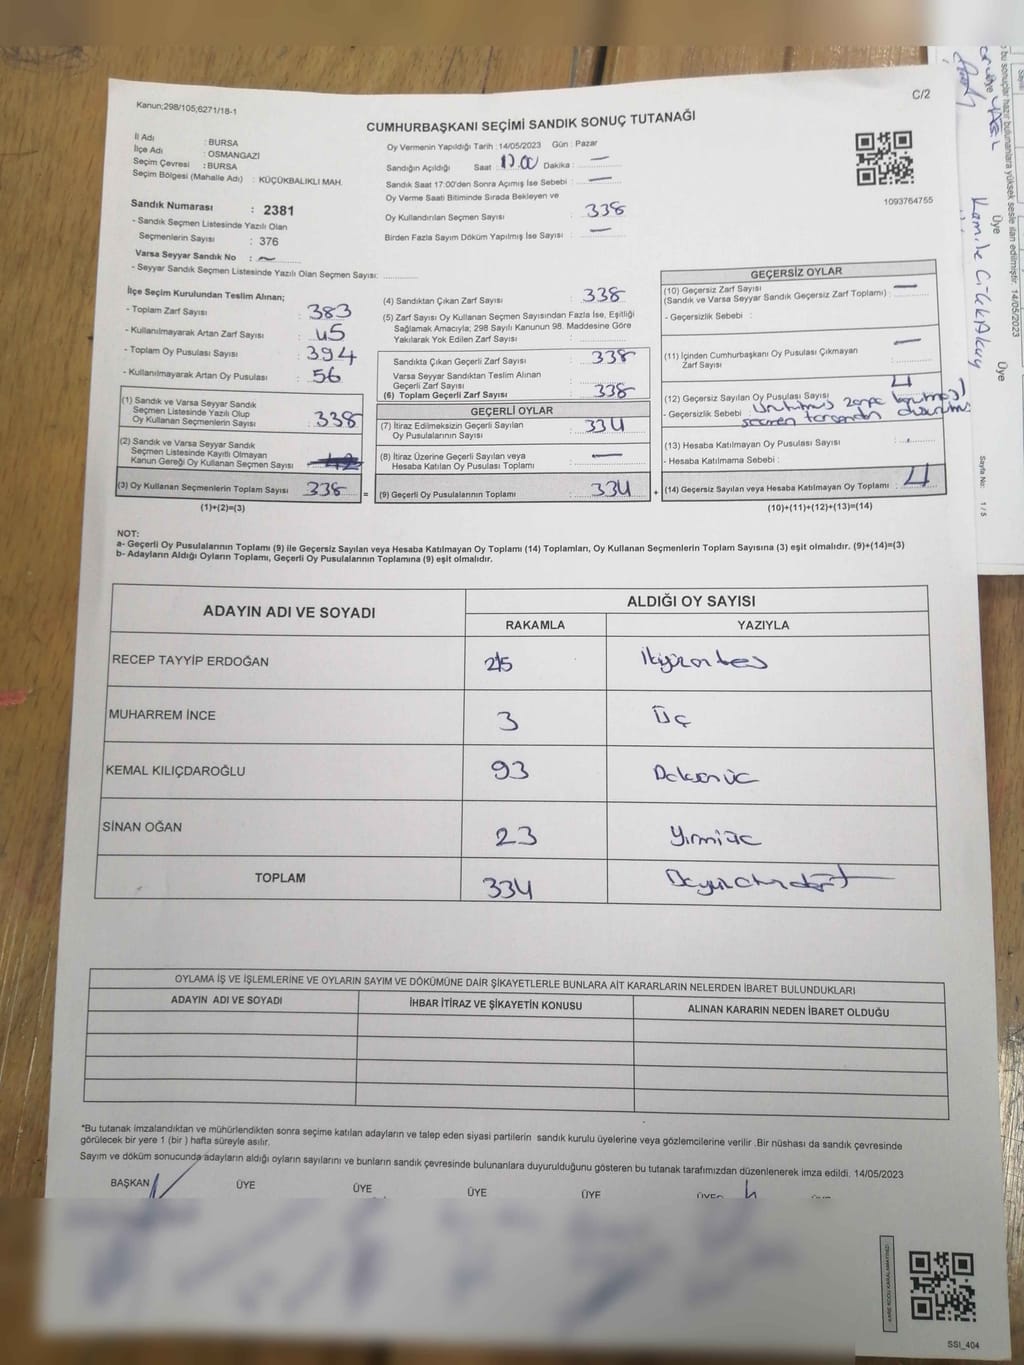 Kanun;298/105;6271/18-1
C/2
CUMHURBAŞKANI SEÇİMİ SANDIK SONUÇ TUTANAĞI
İl Adı : BURSA
İlçe Adı : OSMANGAZİ
Seçim Çevresi : BURSA
Seçim Bölgesi (Mahalle Adı) : KÜÇÜKBALIKLI MAH.
Sandık Numarası : 2381
- Sandık Seçmen Listesinde Yazılı Olan
Seçmenlerin Sayısı : 376
Varsa Seyyar Sandık No : ~
- Seyyar Sandık Seçmen Listesinde Yazılı Olan Seçmen Sayısı: ............
Oy Vermenin Yapıldığı Tarih :14/05/2023 Gün : Pazar
Sandığın Açıldığı Saat : 17.00 Dakika : —
Sandık Saat 17:00'den Sonra Açımış İse Sebebi : —
Oy Verme Saati Bitiminde Sırada Bekleyen ve
Oy Kullandırılan Seçmen Sayısı : 338
Birden Fazla Sayım Döküm Yapılmış İse Sayısı : —
1093764755
İlçe Seçim Kurulundan Teslim Alınan;
- Toplam Zarf Sayısı : 383
- Kullanılmayarak Artan Zarf Sayısı : 45
- Toplam Oy Pusulası Sayısı : 394
- Kullanılmayarak Artan Oy Pusulası : 56
(1) Sandık ve Varsa Seyyar Sandık
Seçmen Listesinde Yazılı Olup
Oy Kullanan Seçmenlerin Sayısı : 338
(2) Sandık ve Varsa Seyyar Sandık
Seçmen Listesinde Kayıtlı Olmayan
Kanun Gereği Oy Kullanan Seçmen Sayısı
(3) Oy Kullanan Seçmenlerin Toplam Sayısı : 338 =
(1)+(2)=(3)
(4) Sandıktan Çıkan Zarf Sayısı : 338
(5) Zarf Sayısı Oy Kullanan Seçmen Sayısından Fazla İse, Eşitliği
Sağlamak Amacıyla; 298 Sayılı Kanunun 98. Maddesine Göre
Yakılarak Yok Edilen Zarf Sayısı : ............
Sandıkta Çıkan Geçerli Zarf Sayısı : 338
Varsa Seyyar Sandıktan Teslim Alınan
Geçerli Zarf Sayısı : ............
(6) Toplam Geçerli Zarf Sayısı : 338
GEÇERLİ OYLAR
(7) İtiraz Edilmeksizin Geçerli Sayılan
Oy Pusulalarının Sayısı : 334
(8) İtiraz Üzerine Geçerli Sayılan veya
Hesaba Katılan Oy Pusulası Toplamı : —
(9) Geçerli Oy Pusulalarının Toplamı : 334 +
GEÇERSİZ OYLAR
(10) Geçersiz Zarf Sayısı
(Sandık ve Varsa Seyyar Sandık Geçersiz Zarf Toplamı) : —
- Geçersizlik Sebebi :
(11) İçinden Cumhurbaşkanı Oy Pusulası Çıkmayan
Zarf Sayısı : —
(12) Geçersiz Sayılan Oy Pusulası Sayısı : 4
- Geçersizlik Sebebi :
seçmen
(13) Hesaba Katılmayan Oy Pusulası Sayısı :
- Hesaba Katılmama Sebebi :
(14) Geçersiz Sayılan veya Hesaba Katılmayan Oy Toplamı : 4
(10)+(11)+(12)+(13)=(14)
NOT:
a- Geçerli Oy Pusulalarının Toplamı (9) ile Geçersiz Sayılan veya Hesaba Katılmayan Oy Toplamı (14) Toplamları, Oy Kullanan Seçmenlerin Toplam Sayısına (3) eşit olmalıdır. (9)+(14)=(3)
b- Adayların Aldığı Oyların Toplamı, Geçerli Oy Pusulalarının Toplamına (9) eşit olmalıdır.
ADAYIN ADI VE SOYADI
ALDIĞI OY SAYISI
RAKAMLA YAZIYLA
RECEP TAYYİP ERDOĞAN 215 İkiyüzonbeş
MUHARREM İNCE 3 Üç
KEMAL KILIÇDAROĞLU 93 Doksanüç
SİNAN OĞAN 23 Yirmiüç
TOPLAM 334
OYLAMA İŞ VE İŞLEMLERİNE VE OYLARIN SAYIM VE DÖKÜMÜNE DAİR ŞİKAYETLERLE BUNLARA AİT KARARLARIN NELERDEN İBARET BULUNDUKLARI
ADAYIN ADI VE SOYADI İHBAR İTİRAZ VE ŞİKAYETİN KONUSU ALINAN KARARIN NEDEN İBARET OLDUĞU
*Bu tutanak imzalandıktan ve mühürlendikten sonra seçime katılan adayların ve talep eden siyasi partilerin sandık kurulu üyelerine veya gözlemcilerine verilir .Bir nüshası da sandık çevresinde
görülecek bir yere 1 (bir ) hafta süreyle asılır.
Sayım ve döküm sonucunda adayların aldığı oyların sayılarını ve bunların sandık çevresinde bulunanlara duyurulduğunu gösteren bu tutanak tarafımızdan düzenlenerek imza edildi. 14/05/2023
BAŞKAN ÜYE ÜYE ÜYE ÜYE
SSİ_404
bu sonuçlar hazır bulunanlara yüksek sesle ilan edilmiştir. 14/05/2023
Üye
Üye
Kamile
Sayfa No: 1 / 5